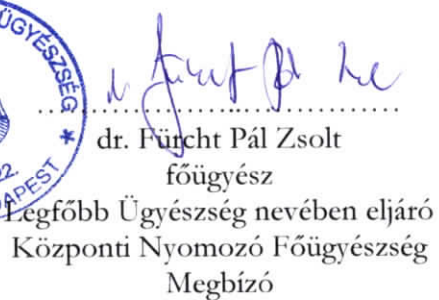 ÜGYÉSZSÉG *
22.
dr. Fürcht Pál Zsolt
főügyész
Legfőbb Ügyészség nevében eljáró
Központi Nyomozó Főügyészség
Megbízó